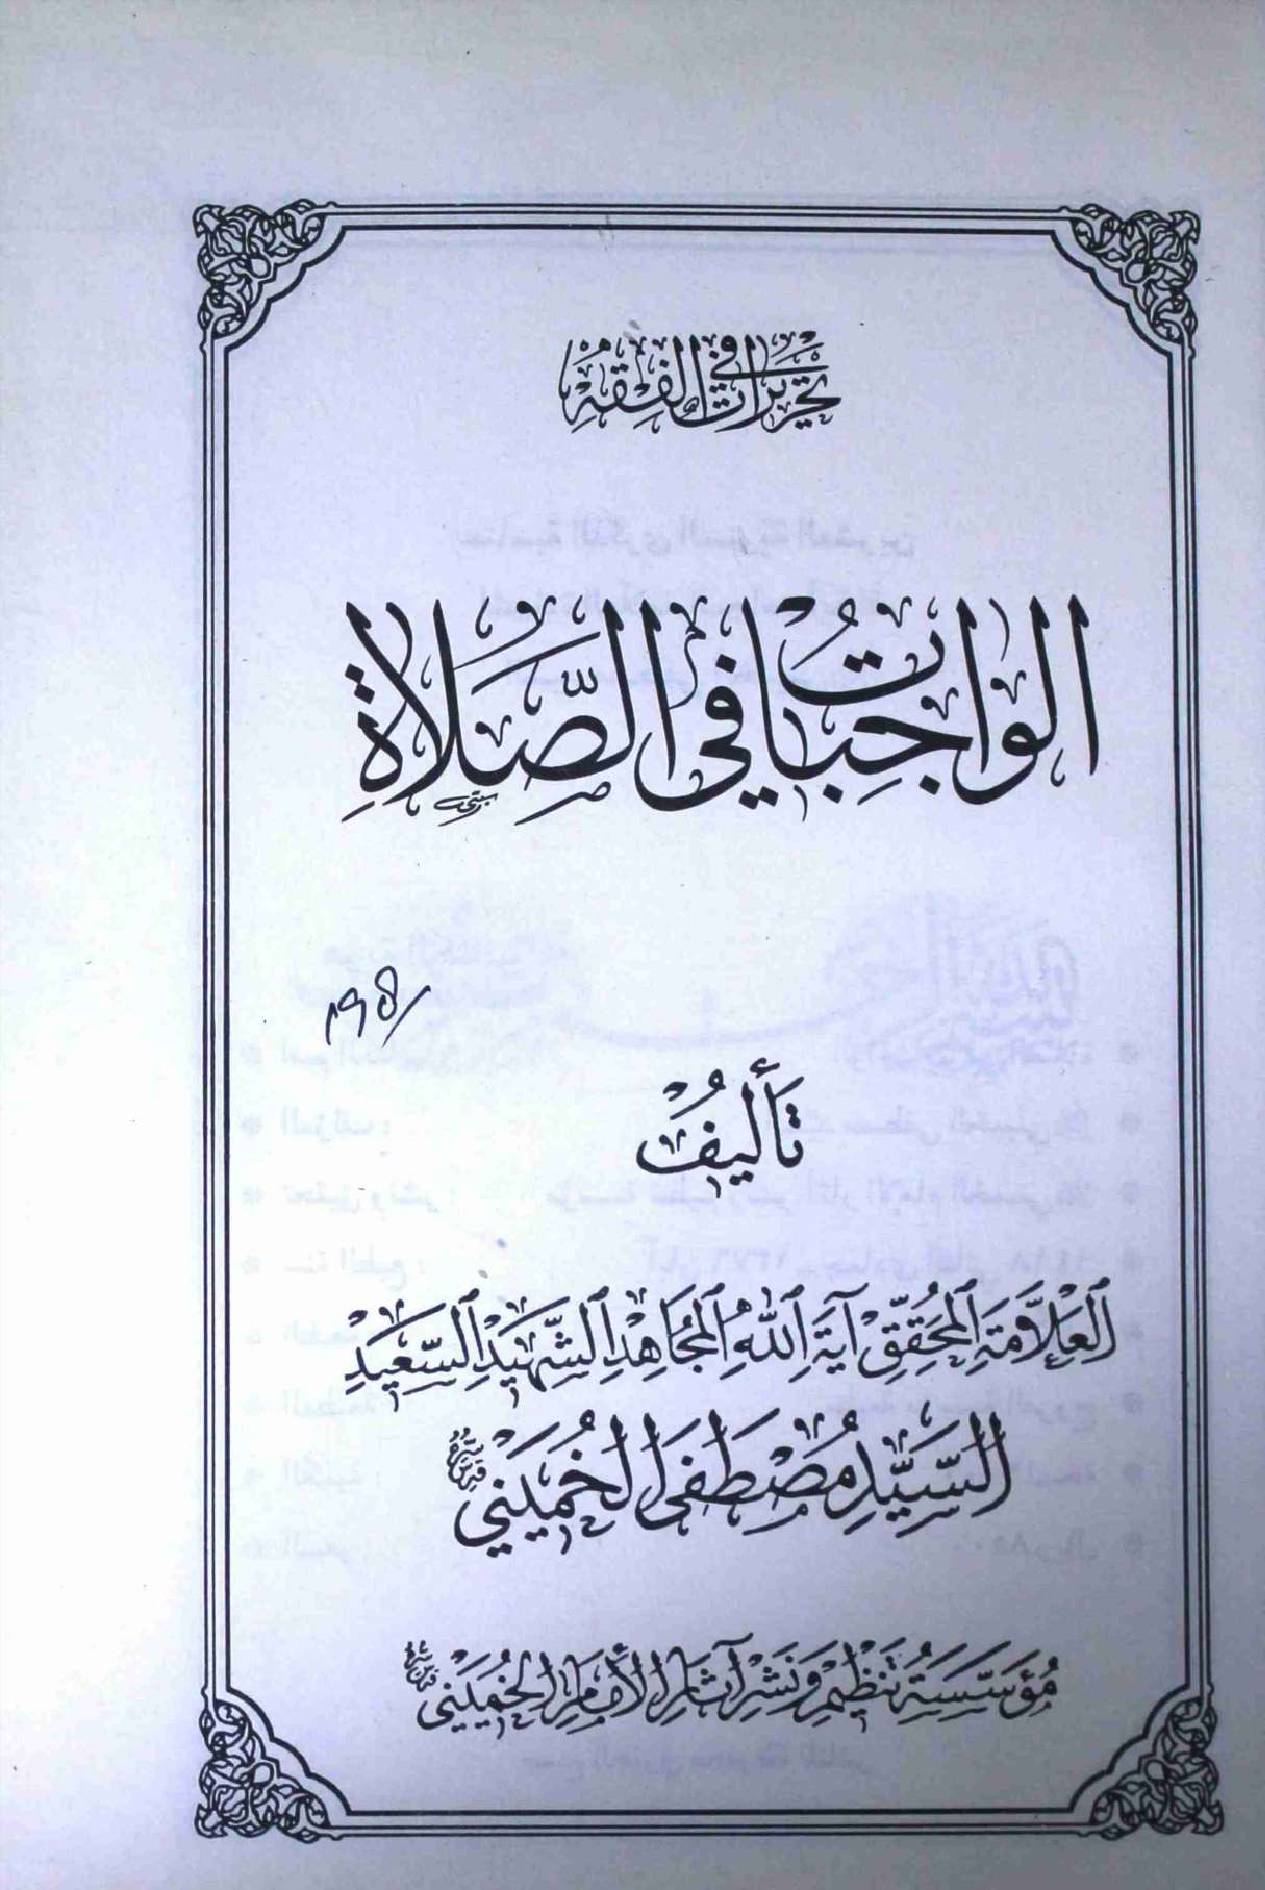 تحريرات في الفقه
الواجبات في الصلاة
تأليف
العلامة المحقق آية الله المجاهد الشهيد السعيد
السيد مصطفى الخميني قدس سره
مؤسسة تنظيم ونشر آثار الإمام الخميني قدس سره